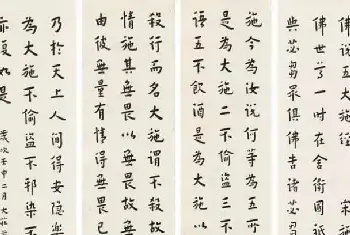 佛世尊一時在舍衛國祇
與苾芻眾俱佛告諸苾芻
施今為汝說何等為五所
是為大施二不偷盜三不
語五不飲酒是為大施以
殺行而名大施謂不殺故
情施其無畏以無畏故
由彼無量有情得無畏已
乃於天上人間得安隱樂
為大施不偷盜不邪染不
亦復如是
歲次壬申二月大莊